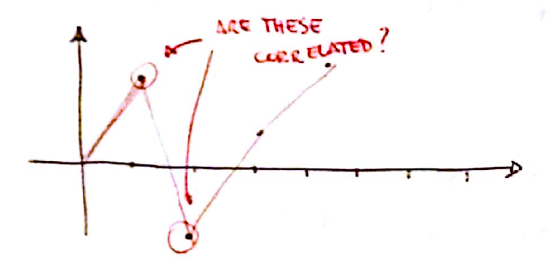 ARE THESE
CORRELATED?